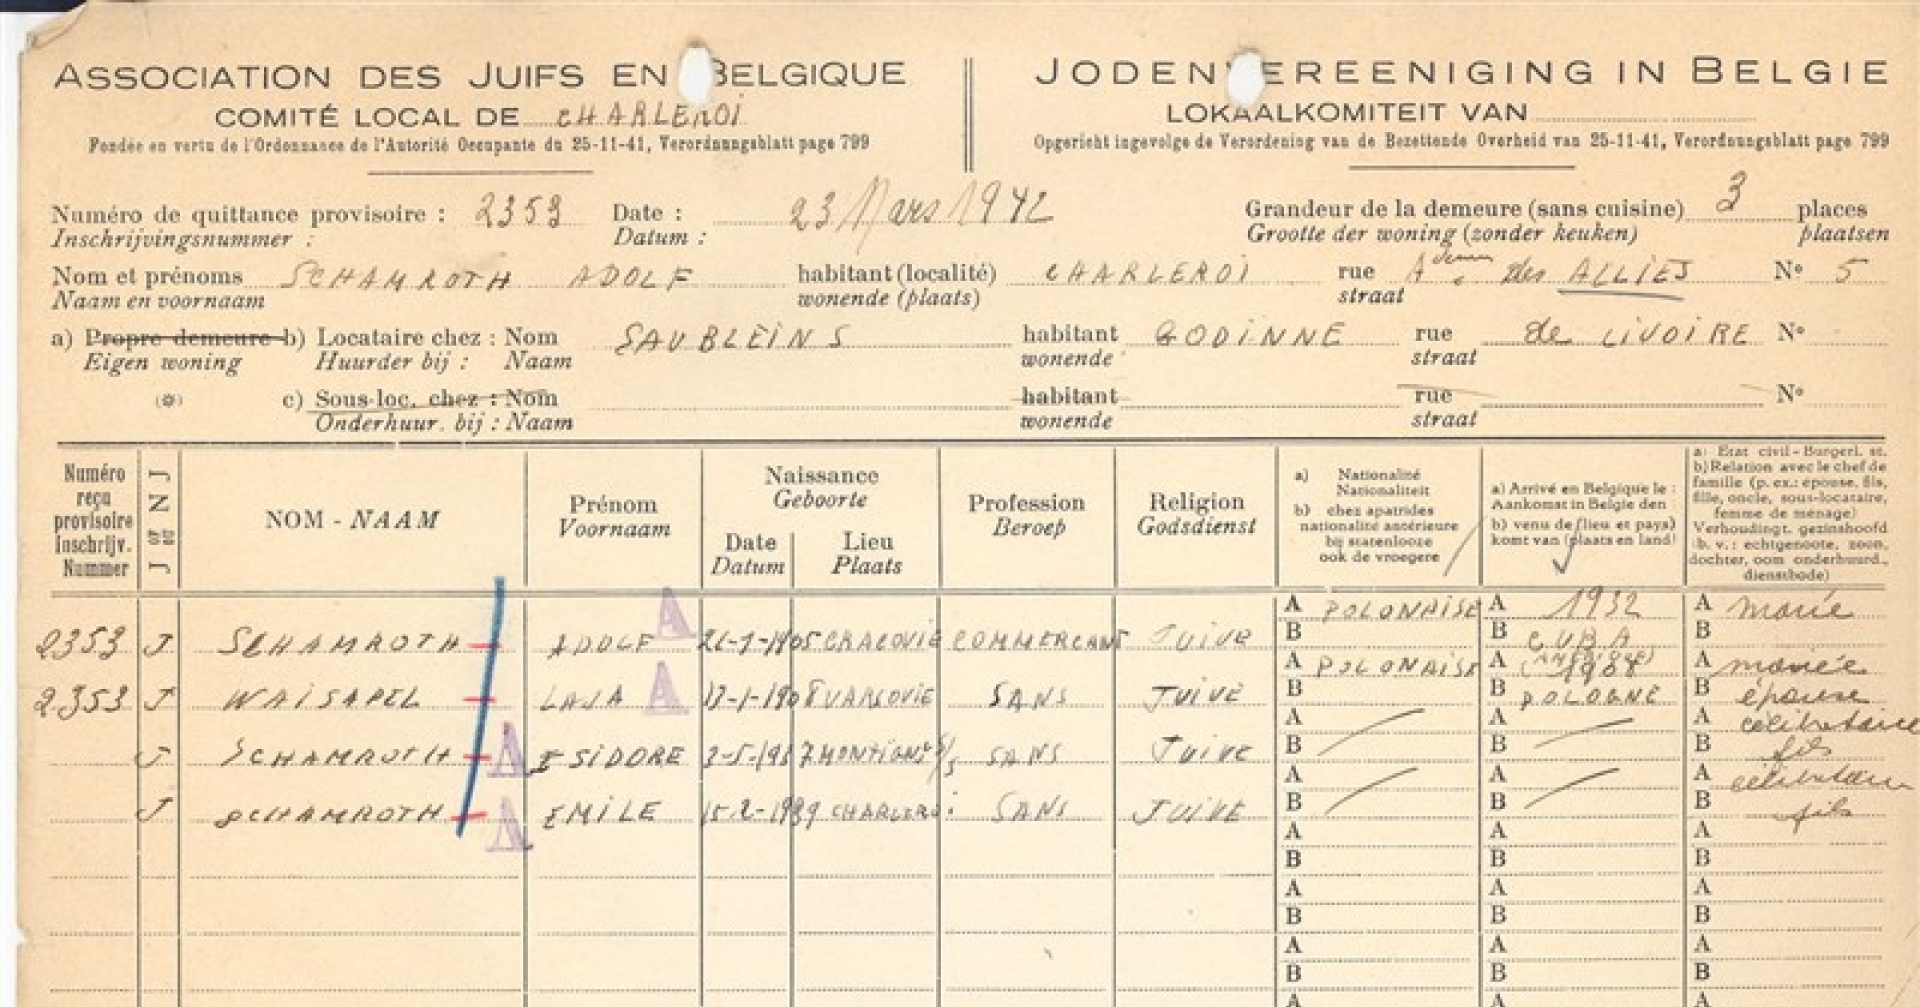 ASSOCIATION DES JUIFS EN BELGIQUE
COMITÉ LOCAL DE CHARLEROI
Fondée en vertu de l'Ordonnance de l'Autorité Occupante du 25-11-41, Verordnungsblatt page 799
JODENVEREENIGING IN BELGIE
LOKAALKOMITEIT VAN
Opgericht ingevolge de Verordening van de Bezettende Overheid van 25-11-41, Verordnungsblatt page 799
Numéro de quittance provisoire : 2353 Date : 23 Mars 1942 Grandeur de la demeure (sans cuisine) 3 places
Inschrijvingsnummer : Datum : Grootte der woning (zonder keuken) plaatsen
Nom et prénoms SCHAMROTH ADOLF habitant (localité) CHARLEROI rue des ALLIES N° 5
Naam en voornaam wonende (plaats) straat
a) Propre demeure b) Locataire chez : Nom SAUBLEINS habitant GODINNE rue de LIVOIRE N°
Eigen woning Huurder bij : Naam wonende straat
(*) c) Sous-loc. chez : Nom habitant rue N°
Onderhuur. bij : Naam wonende straat
Numéro reçu provisoire Inschrijv. Nummer
J or/ou N J
NOM - NAAM
Prénom Voornaam
Naissance Geboorte
Date Datum
Lieu Plaats
Profession Beroep
Religion Godsdienst
a) Nationalité Nationaliteit
b) chez apatrides nationalité antérieure bij statenlooze ook de vroegere
a) Arrivé en Belgique le : Aankomst in Belgie den :
b) venu de (lieu et pays) komt van (plaats en land)
a) Etat civil - Burgerl. st.
b) Relation avec le chef de famille (p. ex.: épouse, fils, fille, oncle, sous-locataire, femme de ménage)
Verhoudingt. gezinshoofd (b. v.: echtgenoote, zoon, dochter, oom onderhuurd., dienstbode)
2353 J SCHAMROTH ADOLF A 1905 CRACOVIE COMMERCANT JUIVE A POLONAISE B A 1932 B CUBA A marié B
2353 J WAISAPEL LAJA A 17-1-1908 VARSOVIE SANS JUIVE A POLONAISE B A B POLOGNE A mariée B épouse
J SCHAMROTH A ISIDORE MONTIGNY S/S SANS JUIVE A B A B A célibataire B fils
J SCHAMROTH A EMILE 15-2-1939 CHARLEROI SANS JUIVE A B A B A célibataire B fils
A A A
B B B
A A A
B B B
A A A
B B B
A A A